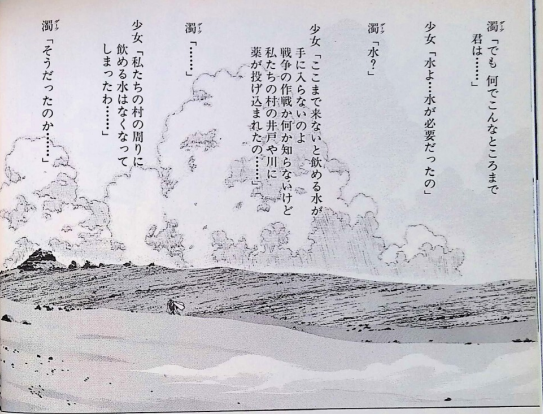 濁「でも 何でこんなところまで
君は………」
少女「水よ…水が必要だったの」
濁「水？」
少女「ここまで来ないと飲める水が
手に入らないのよ
戦争の作戦か何か知らないけど
私たちの村の井戸や川に
薬が投げ込まれたの………」
濁「……」
少女「私たちの村の周りに
飲める水はなくなって
しまったわ……」
濁「そうだったのか……」